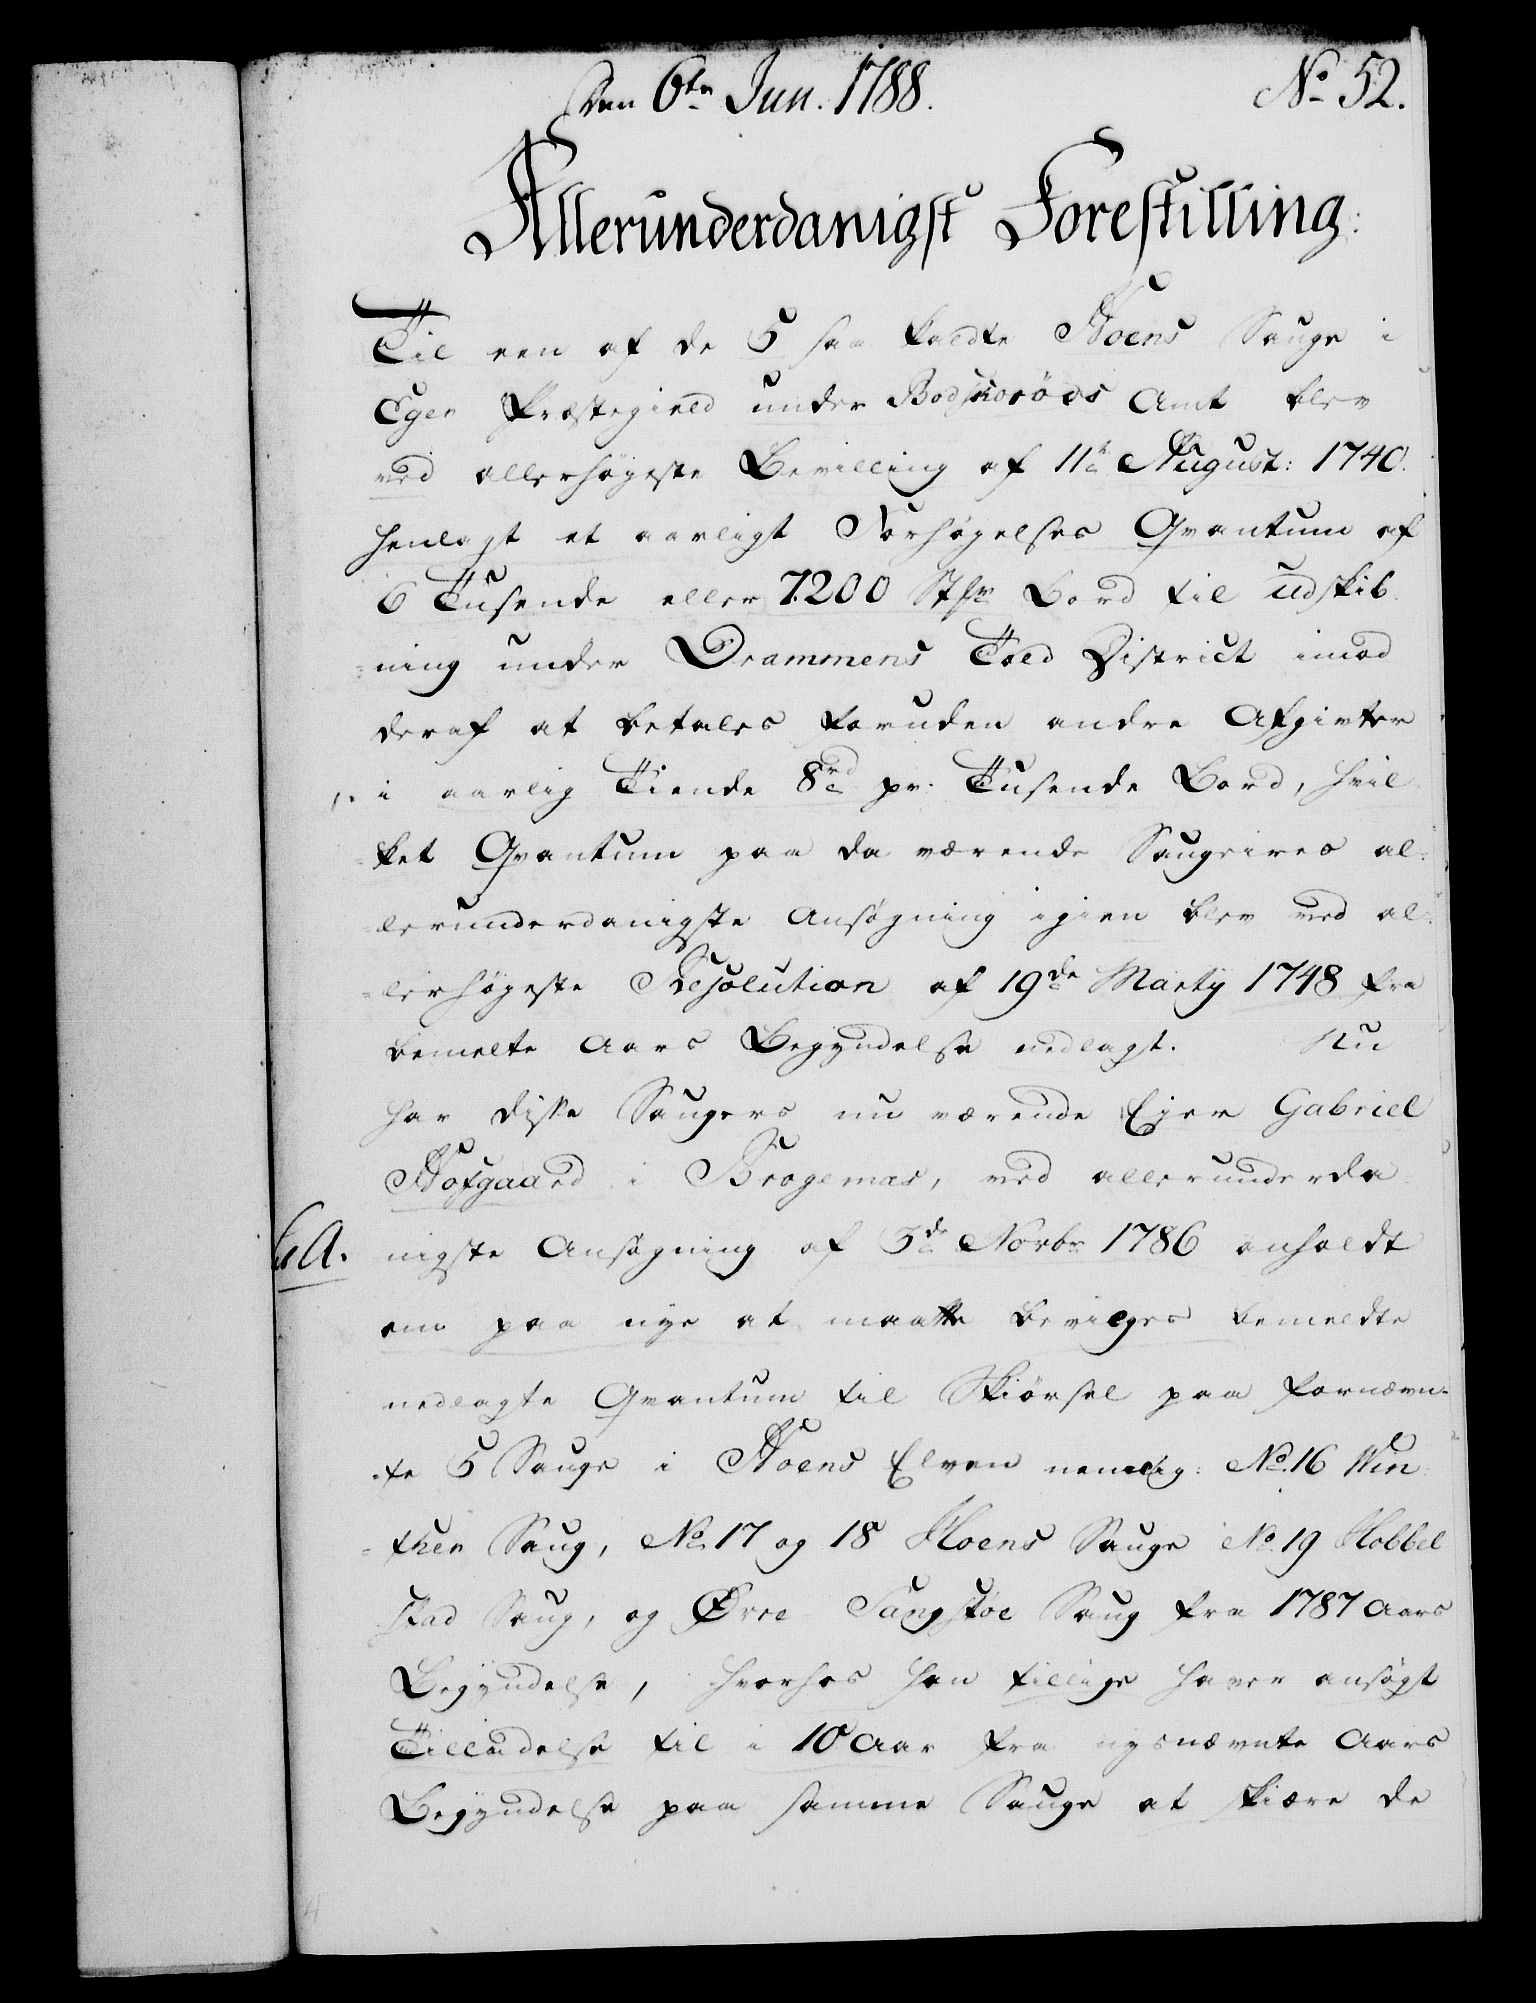 Den 6te Jun. 1788. No 52.
Allerunderdanigst Forestilling:
Til een af de 5 saa kaldte Hoens Sauge i
Eger Præstegield under Budskeruds Amt blev
ved allerhøyeste Bevilling af 11te August: 1740.
henlagt et aarligt Forhøyelses Qvantum af
6 Tusende eller 7200 Stkr Bord til Udskib
ning under Drammens Told District imod
deraf at betales foruden andre Afgivter
i aarlig Tiende 8rd pr. Tusende Bord, hvil
ket Qvantum paa da værende Saugeires al:
lerunderdanigste Ansøgning igien blev ved al:
lerhøyeste Resolution af 19de Marty 1748 fra
bemelte Aars Begyndelse nedlagt. Nu
har disse Saugers nu værende Ejer Gabriel
Hofgaard i Bragernæs, ved allerunderda
L. A. nigste Ansøgning af 3de Novbr 1786 anholdt
om paa nye at maatte bevilges bemeldte
nedlagte Qvantum til Skiørsel paa fornævn-
te 5 Sauge i Hoens Elven nemlig: No. 16 Win
ther Saug, No. 17 og 18 Hoens Sauge No. 19 Hobbel
stad Saug, og Øvre Sangstøe Saug fra 1787 Aars
Begyndelse, hvorhos han tillige haver ansøgt
Tilladelse til i 10 Aar fra nysnævnte Aars
Begyndelse paa samme Sauge at skiære de